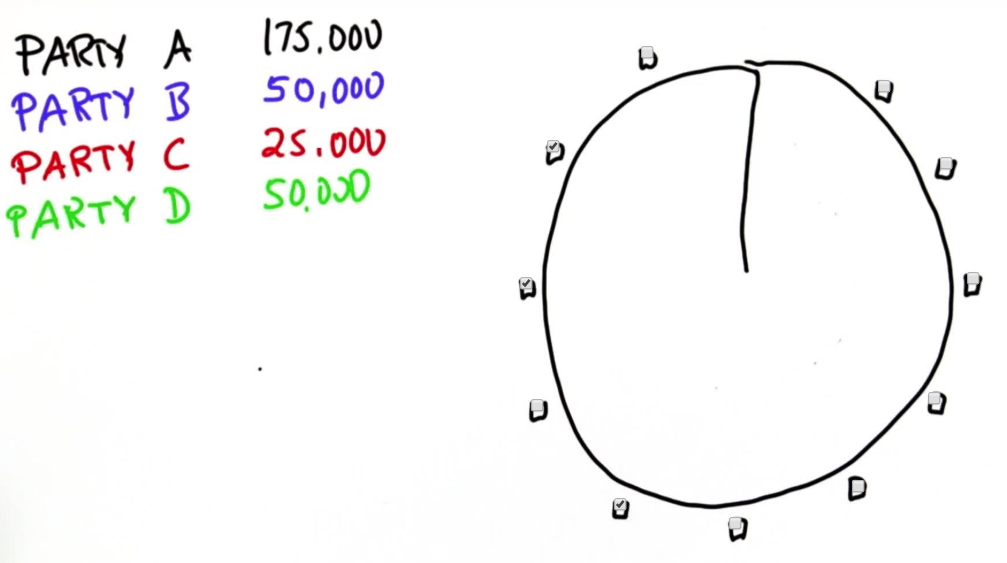 PARTY A 175.000
PARTY B 50,000
PARTY C 25.000
PARTY D 50.000